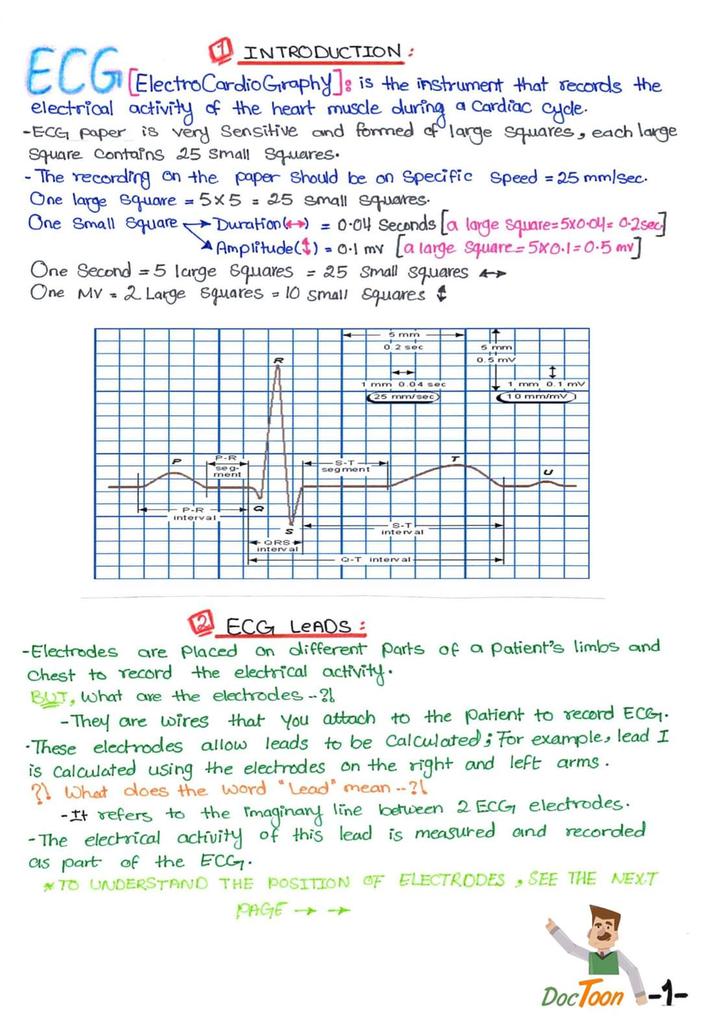 1 INTRODUCTION:
ECG [ElectroCardioGraphy]: is the instrument that records the
electrical activity of the heart muscle during a cardiac cycle.
-ECG paper is very sensitive and formed of large squares, each large
square contains 25 small squares.
- The recording on the paper should be on specific speed = 25 mm/sec.
One large square = 5x5 = 25 small squares.
One small square → Duration(↔) = 0.04 seconds [a large square=5x0.04= 0.2sec]
Amplitude(↕) = 0.1 mv [a large square= 5x0.1=0.5 mv]
One Second = 5 large squares = 25 small squares ↔
One Mv = 2 Large squares = 10 small squares ↕
5 mm
0.2 sec
5 mm
0.5 mV
1 mm 0.04 sec
25 mm/sec
1 mm 0.1 mV
10 mm/mV
R
P
P-R
seg-
ment
S-T
segment
T
U
P-R
interval
Q
S
QRS
interval
S-T
interval
Q-T interval
2 ECG LEADS:
-Electrodes are placed on different parts of a patient's limbs and
chest to record the electrical activity.
BUT, what are the electrodes --?!
-They are wires that you attach to the patient to record ECG.
·These electrodes allow leads to be calculated; For example, lead I
is calculated using the electrodes on the right and left arms.
?! What does the word "Lead" mean --?!
-It refers to the imaginary line between 2 ECG electrodes.
-The electrical activity of this lead is measured and recorded
as part of the ECG.
*TO UNDERSTAND THE POSITION OF ELECTRODES, SEE THE NEXT
PAGE → →
DocToon -1-